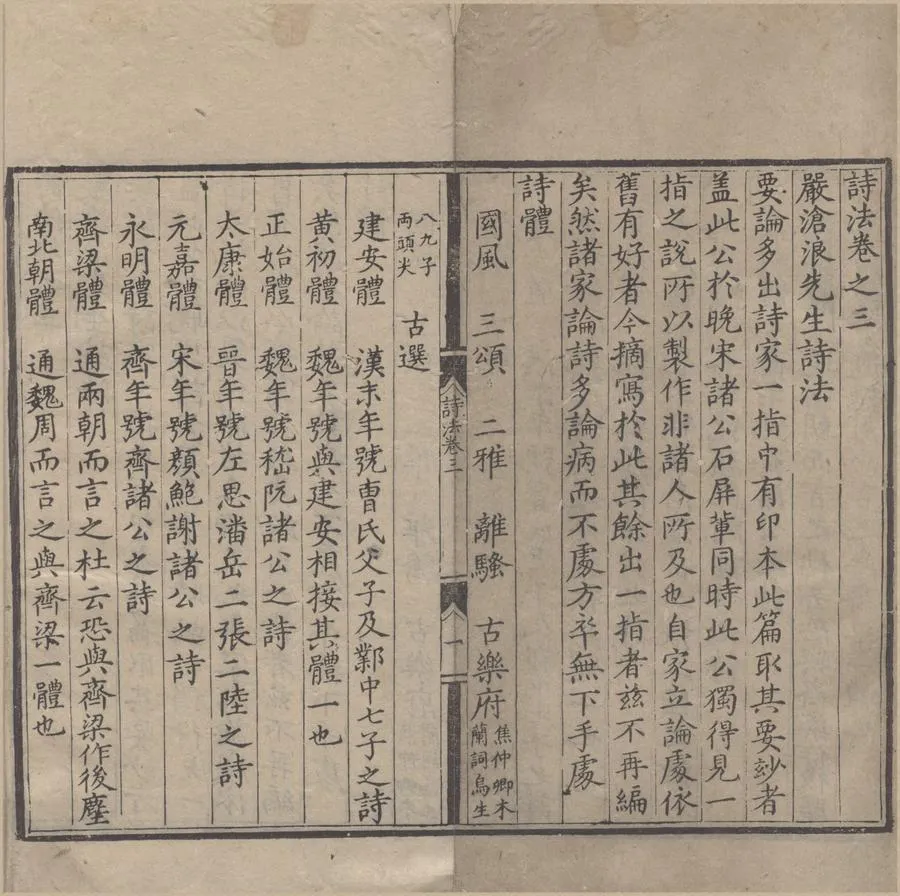 詩法卷之三
嚴滄浪先生詩法
要論多出詩家一指中有印本此篇取其要妙者
盖此公於晚宋諸公石屏軰同時此公獨得見一
指之說所以製作非諸人所及也自家立論處依
舊有好者今摘寫於此其餘出一指者兹不再編
矣然諸家論詩多論病而不處方卒無下手處
詩體
國風 三頌 二雅 離騷 古樂府 焦仲卿木
蘭詞烏生
詩法卷三
一
八九子
両頭尖 古選
建安體 漢末年號曹氏父子及鄴中七子之詩
黄初體 魏年號與建安相接其體一也
正始體 魏年號嵇阮諸公之詩
太康體 晉年號左思潘岳二張二陸之詩
元嘉體 宋年號顔鮑謝諸公之詩
永明體 齊年號齊諸公之詩
齊梁體 通兩朝而言之杜云恐與齊梁作後塵
南北朝體 通魏周而言之與齊梁一體也